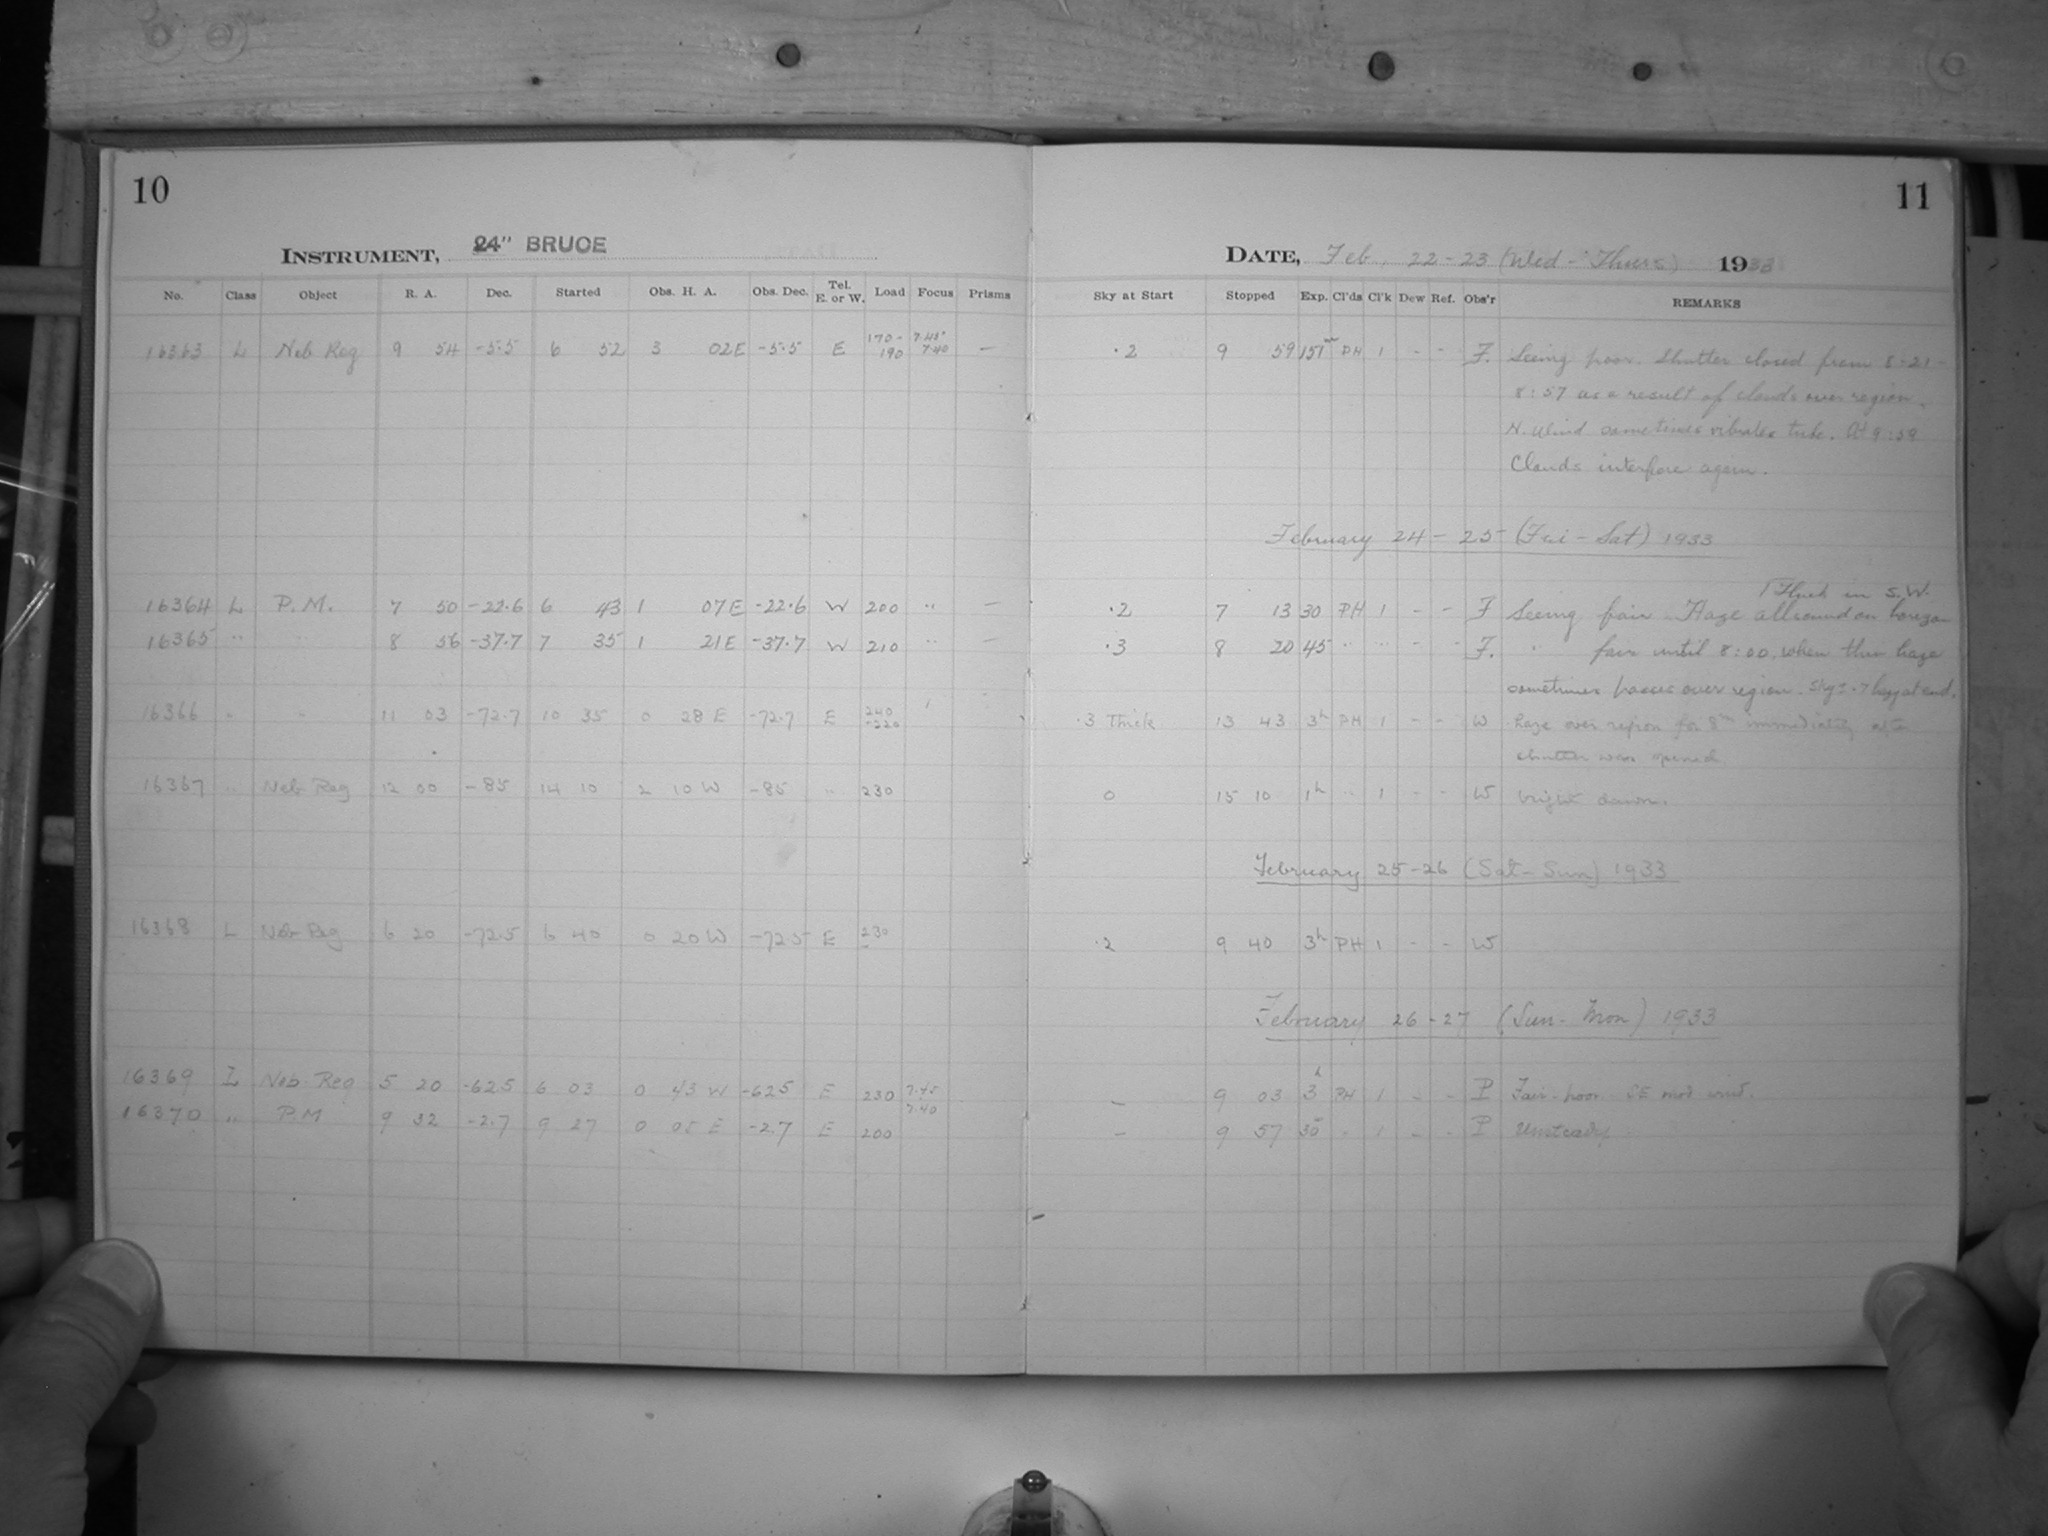 10
11
INSTRUMENT, 24" BRUCE
DATE, Feb. 22-23 (Wed - Thurs) 1933
No. Class Object R. A. Dec. Started Obs. H. A. Obs. Dec. Tel. E. or W. Load Focus Prisms Sky at Start Stopped Exp. Cl'ds Cl'k Dew Ref. Obs'r REMARKS
16363 L Neb Reg 9 54 -5.5 6 52 3 02E -5.5 E 170- 190 7.45 7.40 — .2 9 59 151m PH 1 - - F. Seeing poor. Shutter closed from 8-21-
8:57 as a result of clouds over region.
N. Wind sometimes vibrates tube. At 9:59
Clouds interfere again.
February 24 - 25 (Fri - Sat) 1933
Thick in S.W.
16364 L P.M. 7 50 -22.6 6 43 1 07E -22.6 W 200 " — .2 7 13 30 PH 1 - - F Seeing fair. Haze all round on horizon
16365 " " 8 56 -37.7 7 35 1 21E -37.7 W 210 " — .3 8 20 45 " " - - F. " fair until 8:00, when thin haze
sometimes passes over region. Sky .7 hazy at end.
16366 " " 11 03 -72.7 10 35 0 28 E -72.7 E 240 -220 .3 Thick 13 43 3h PH 1 - - W haze over region for 8m immediately after
shutter was opened
16367 " Neb Reg 12 00 -85 14 10 2 10 W -85 " 230 0 15 10 1h " 1 - - W bright dawn.
February 25-26 (Sat - Sun) 1933
16368 L Neb Reg 6 20 -72.5 6 40 0 20 W -72.5 E 230 .2 9 40 3h PH 1 - - W
February 26-27 (Sun - Mon) 1933
16369 L Neb. Reg 5 20 -62.5 6 03 0 43 W -62.5 E 230 7.45 7.40 — 9 03 3h PH 1 - - P Fair-poor. SE mod wind.
16370 " P.M 9 32 -2.7 9 27 0 05 E -2.7 E 200 — 9 57 30 " 1 - - P Unsteady